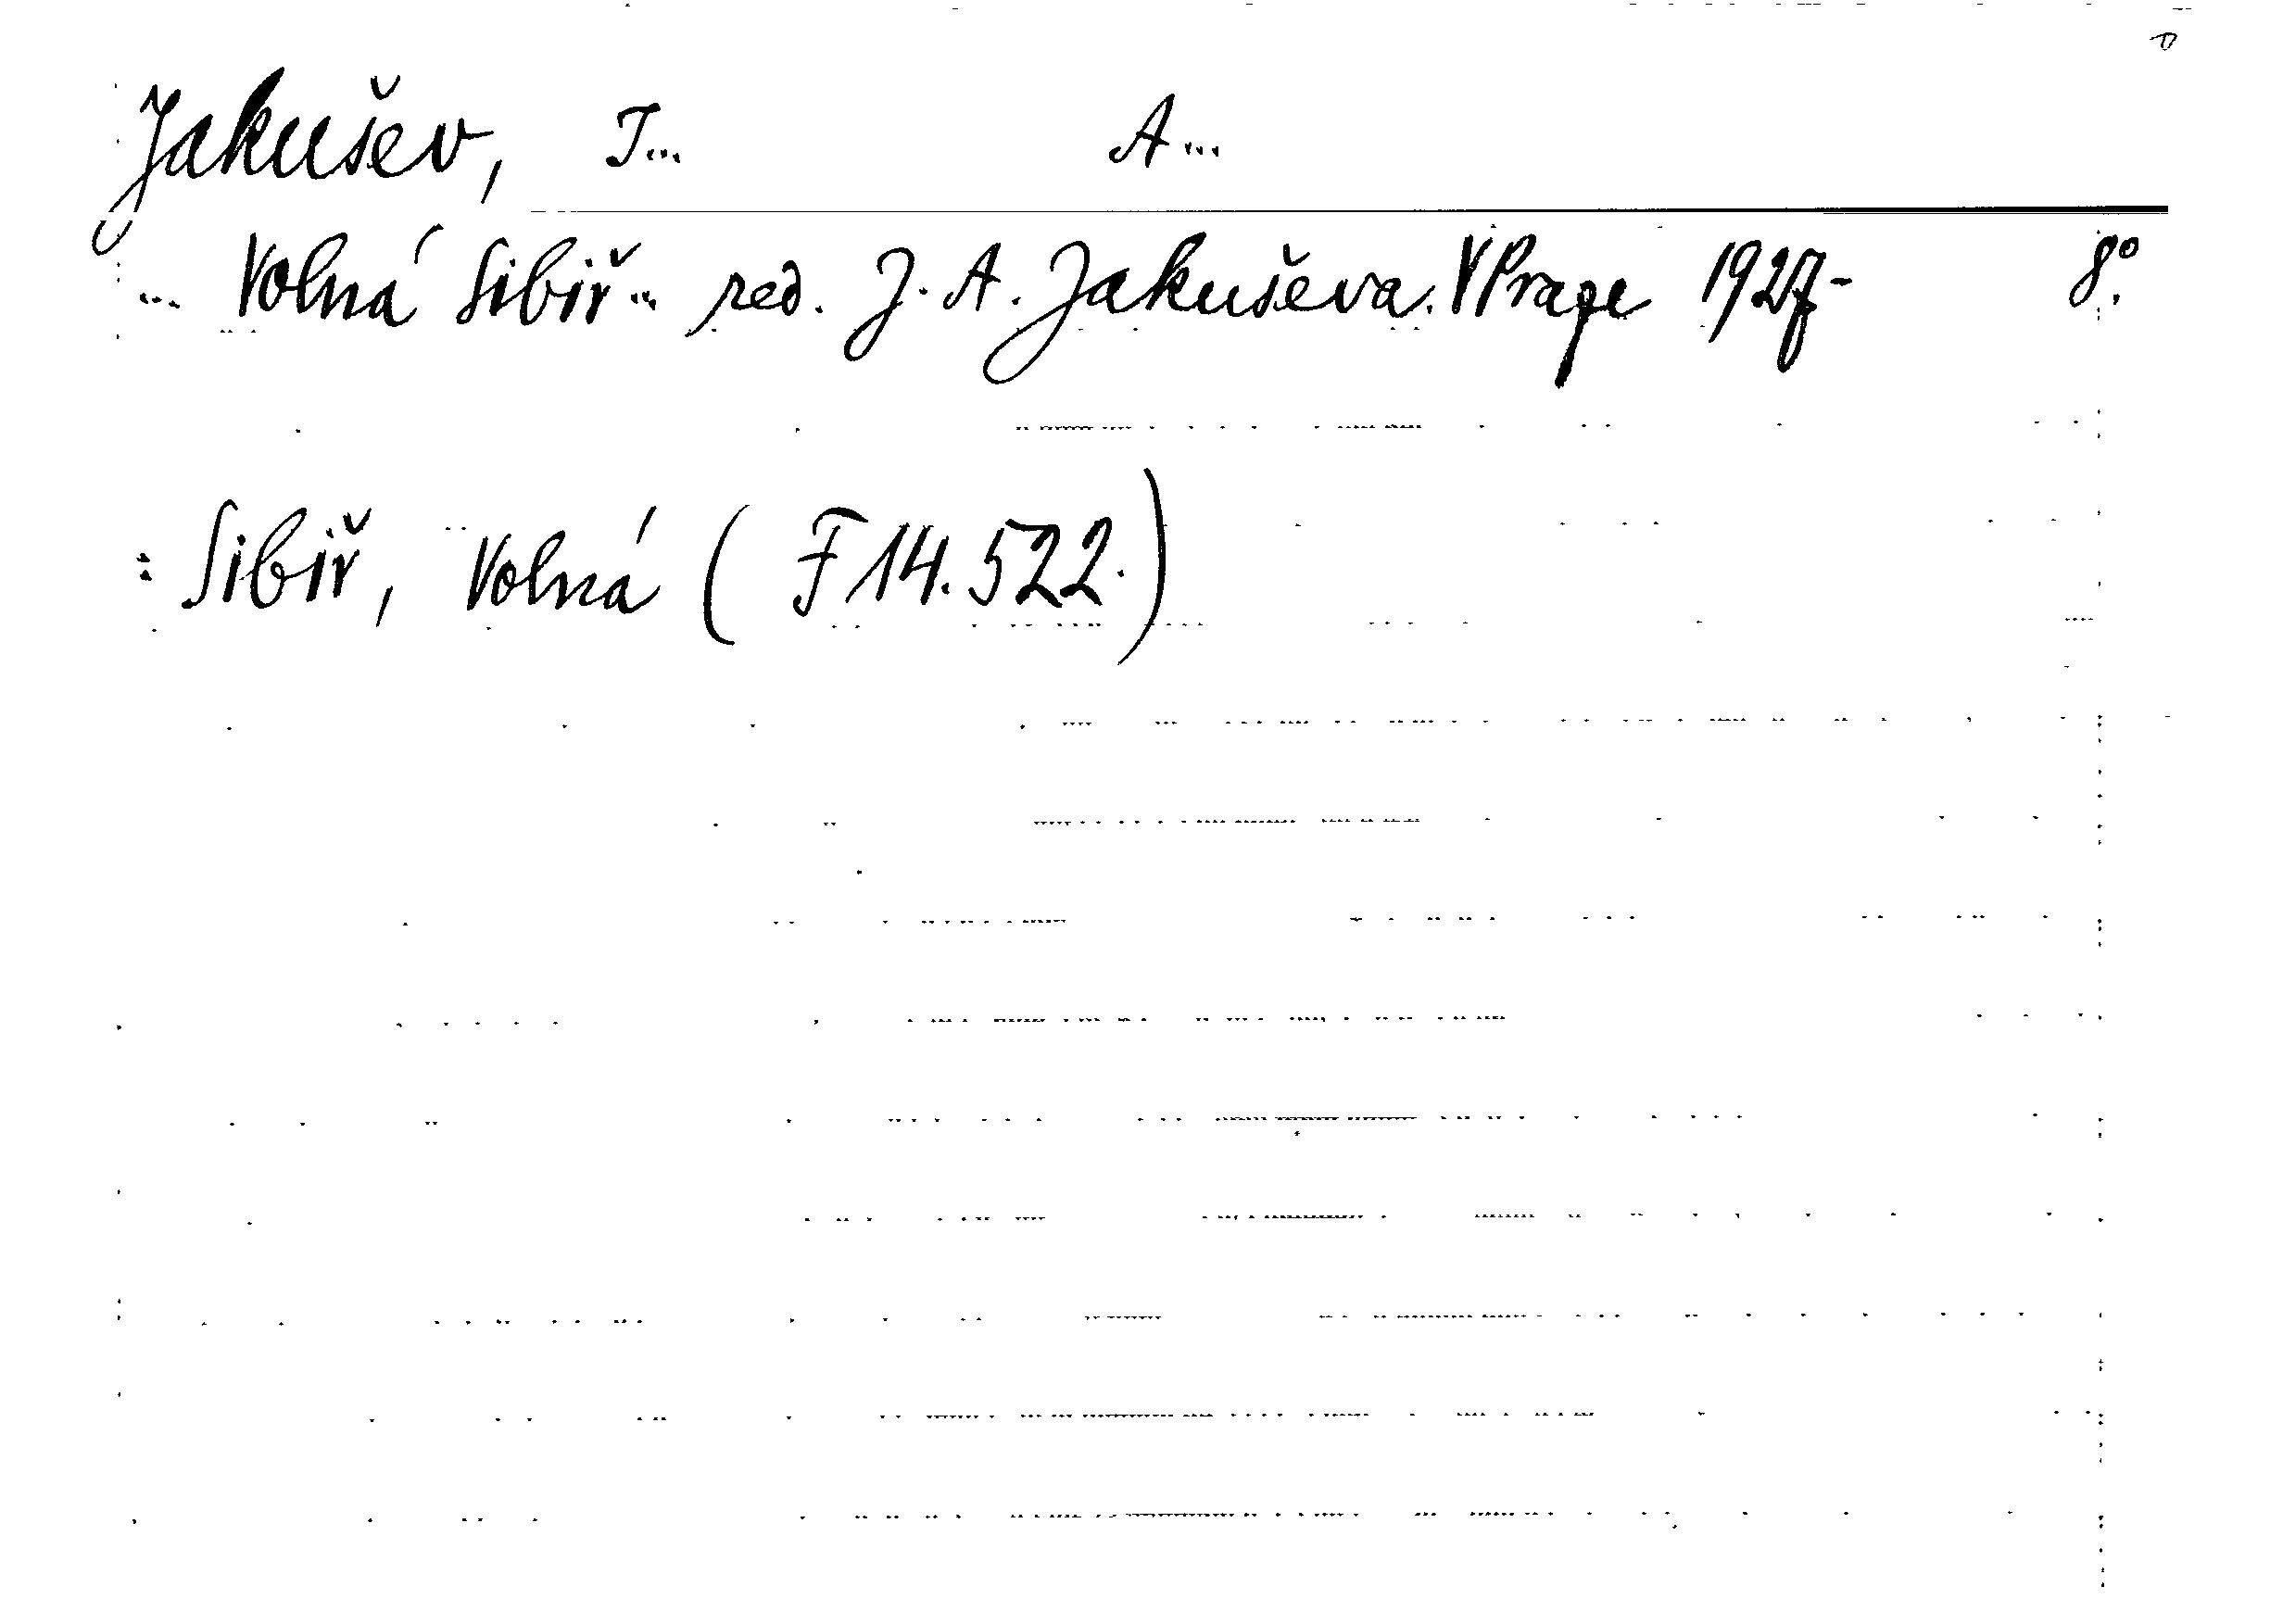 Jakušev, I... A...
... Volná Sibiř... red. J. A. Jakuševa. V Prage 1927- 8°.
: Sibiř, Volná (F 14.522.)